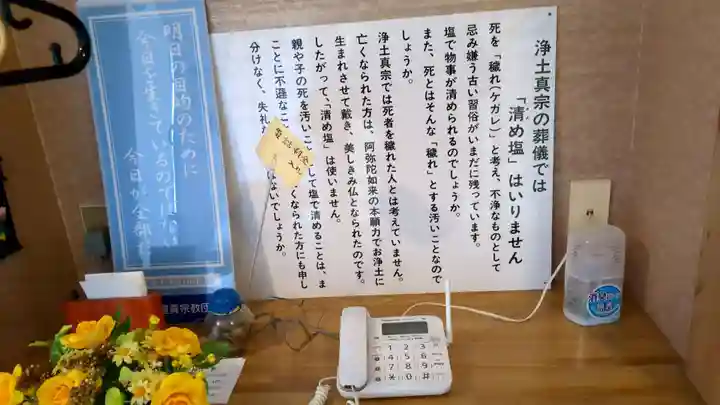 浄土真宗の葬儀では
「清め塩」はいりません
死を「穢れ(ケガレ)」と考え、不浄なものとして
忌み嫌う古い習俗がいまだに残っています。
塩で物事が清められるのでしょうか。
また、死とはそんな「穢れ」とする汚いことなので
しょうか。
浄土真宗では死者を穢れた人とは考えていません。
亡くなられた方は、阿弥陀如来の本願力でお浄土に
生まれさせて戴き、美しきみ仏となられたのです。
したがって、「清め塩」は使いません。
親や子の死を汚いこ　して塩で清めることは、ま
ことに不遜なこ　くなられた方にも申し
分けなく、失礼　はないでしょうか。
明日の目的のために
今日を生きているのではない
今日が全部
真宗教団